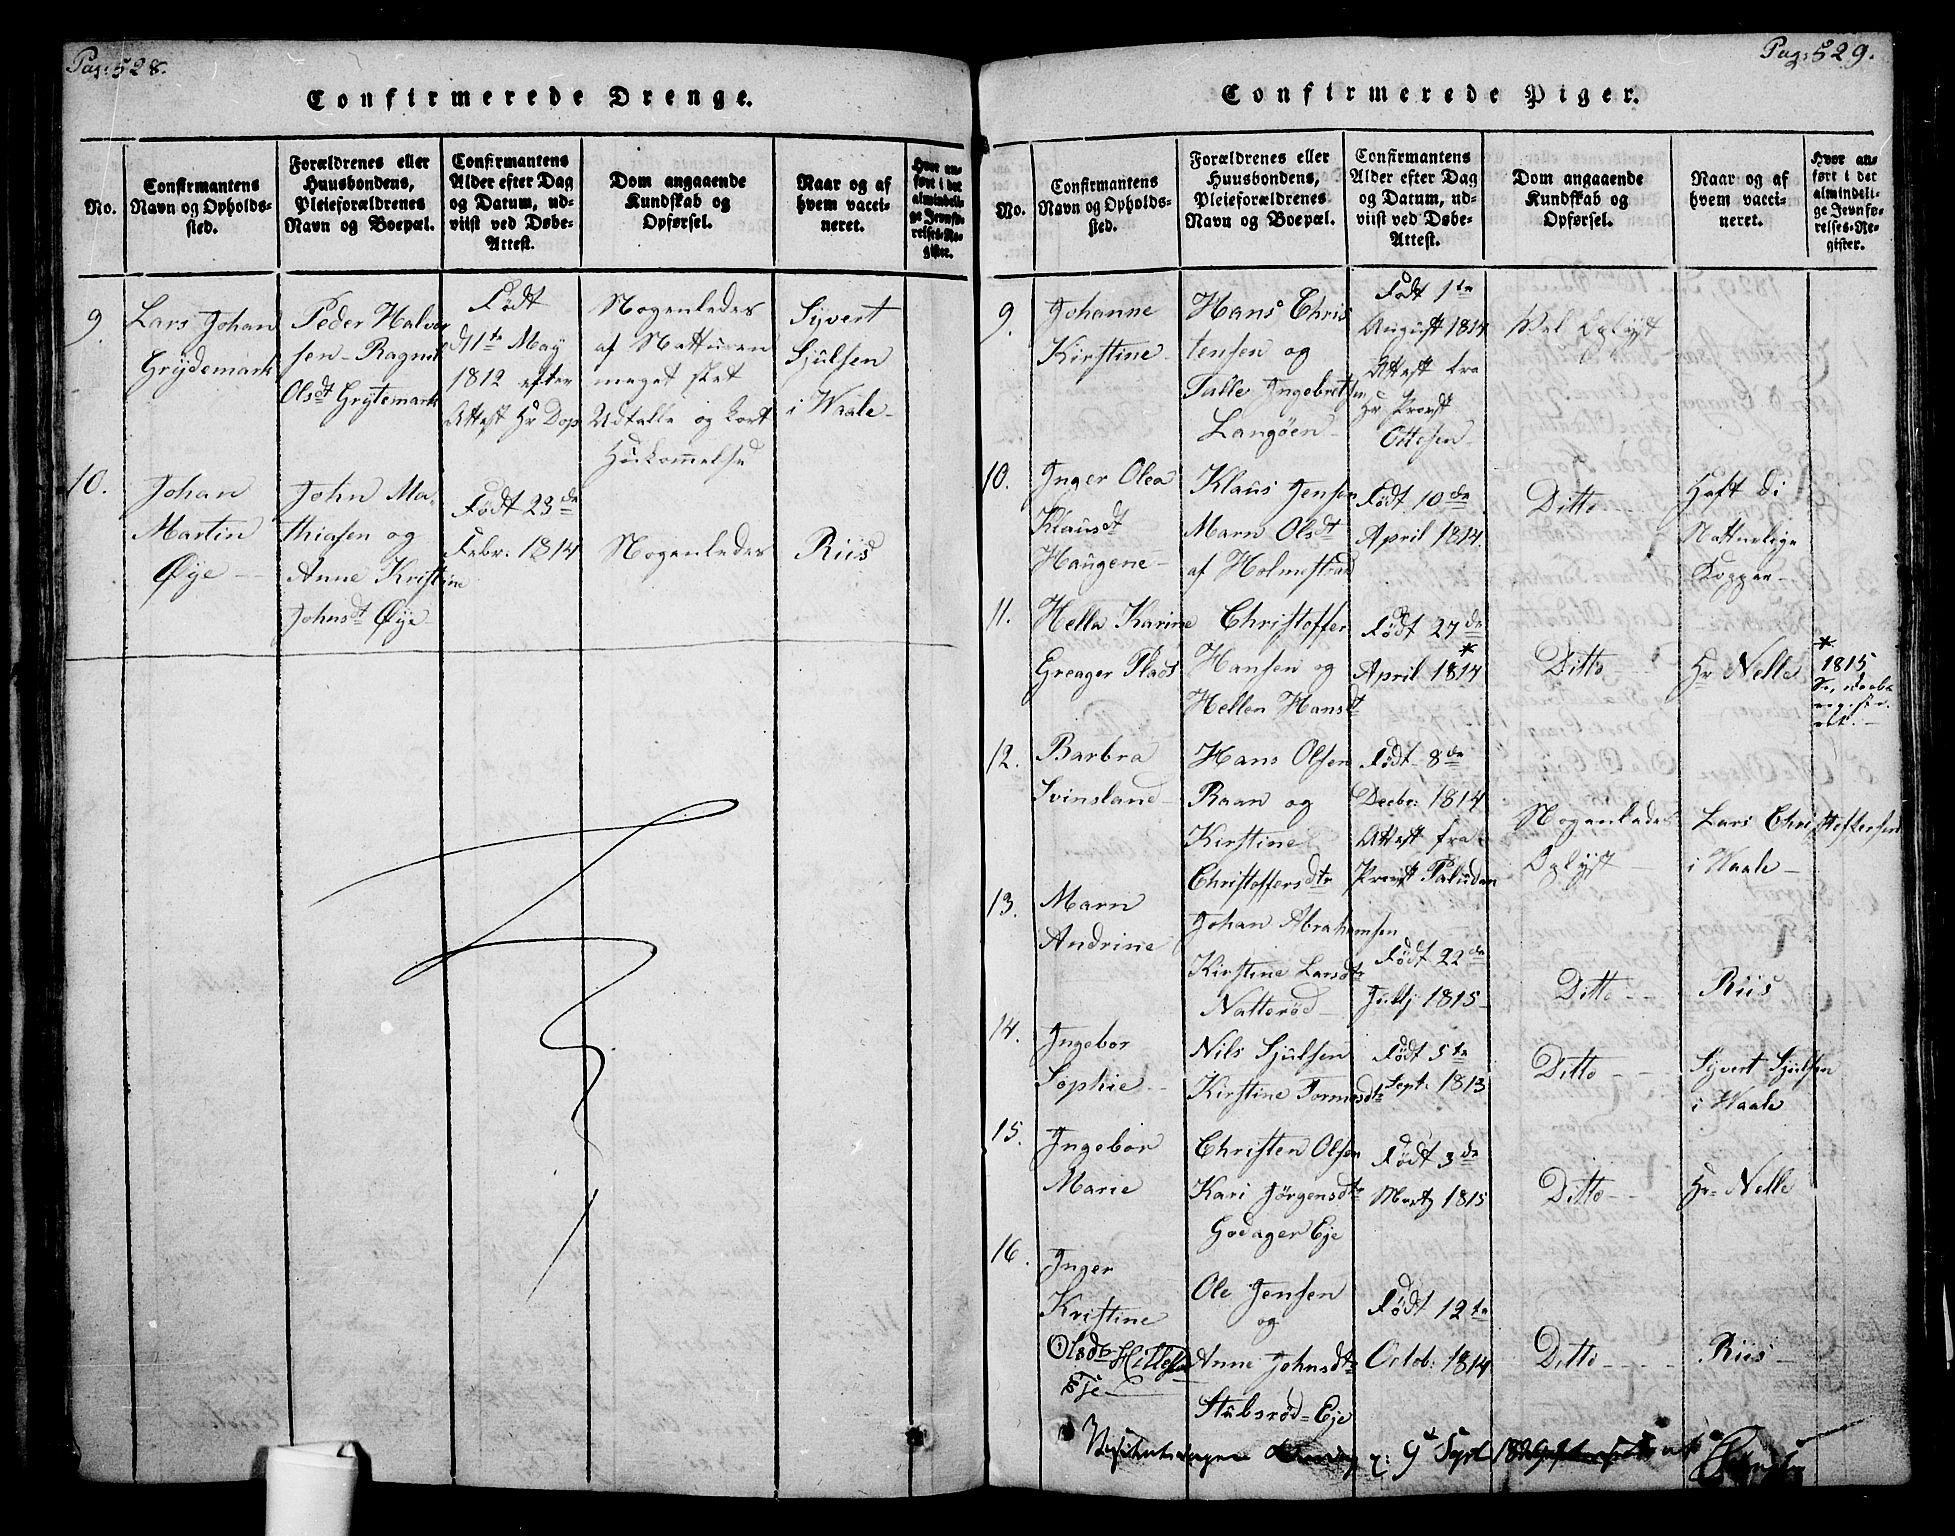 Pag: 528.
Confirmerede Drenge.
No.
Confirmantens
Navn og Opholds-
sted.
Forældrenes eller
Huusbondens,
Pleieforældrenes
Navn og Boepæl.
Confirmantens
Alder efter Dag
og Datum, ud-
viist ved Døbe-
Attest.
Dom angaaende
Kundskab og
Opførsel.
Naar og af
hvem vacci-
neret.
Hvor an-
ført i det
almindeli-
ge Jevnfø-
relses-Re-
gister.
9.
Lars Johan
Grydemark
Peder Halvor
sen - Ragnil
Olsdt Grytemark
Født
d 11te May
1812 efter
Attest Hr Dop
Nogenledes
af Natturen
meget slet
Udtalle og kort
Hukommelse
Syvert
Sjulsen
i Waale-
10.
Johan
Martin
Øÿe -
John Ma-
thiasen og
Anne Kristine
Johnsdt Øÿe
Født 23de
Febr: 1814
Nogenledes
Riis
Pag: 529.
Confirmerede Piger.
No.
Confirmantens
Navn og Opholds-
sted.
Forældrenes eller
Huusbondens,
Pleieforældrenes
Navn og Boepæl.
Confirmantens
Alder efter Dag
og Datum, ud-
viist ved Døbe-
Attest.
Dom angaaende
Kundskab og
Opførsel.
Naar og af
hvem vacci-
neret.
Hvor an-
ført i det
almindeli-
ge Jevnfø-
relses-Re-
gister.
9.
Johanne
Kirstine-
Hans Chris
tensen og
Talle Ingebretsen
Langøen-
Født 1te
August 1814
Attest fra
Hr Provst
Ottesen-
Vel Oplyst
10.
Inger Olea
Klausdt
Haugene-
Klaus Jensen
Marn Olsdt
af Holmestrand
Født 10de
April 1814.
Ditto
Haft di
Nattuelige
Kopper-
11.
Hella Karine
Greager Plads
Christoffer
Hansen og
Hellen Hansdt
Født 27de
April 1814 *
Ditto
Hr Nelle
*
1815
12.
Barbra
Svinsland-
Hans Olsen
Raan og
Kirstine
Christoffersdtr
Født 8de
Decbr: 1814
Attest fra
Provst Paludan
Nogenledes
Oplyst
Lars Christoffersen
i Waale-
13.
Marn
Andrine
Johan Abrahamsen
Kirstine Larsdtr
Natterød-
Født 22de
Julij 1815-
Ditto
Riis
14.
Ingebor
Sophie-
Nils Sjulsen
Kirstine Tormosdtr
Født 5te
Sept: 1813
Ditto
Syvert Sjulsen
i Waale
15.
Ingebor
Marie
Christen Olsen
Kari Jørgensdtr
Godager Eje
Født 3de
Martj 1815
Ditto
Hr Nelle
16.
Inger
Kristine
Olsdtr Hillestad
Eje
Ole Jensen
og
Anne Johnsdtr
Stubsrød=Eje
Født 12te
Octob: 1814
Ditto
Riis-